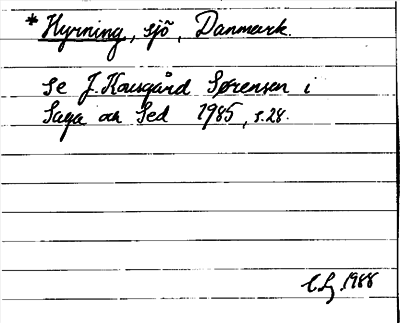 * Hyrning, sjö, Danmark.
se J. Kousgård Sørensen i
Saga och Sed 1985, s.28.
1988